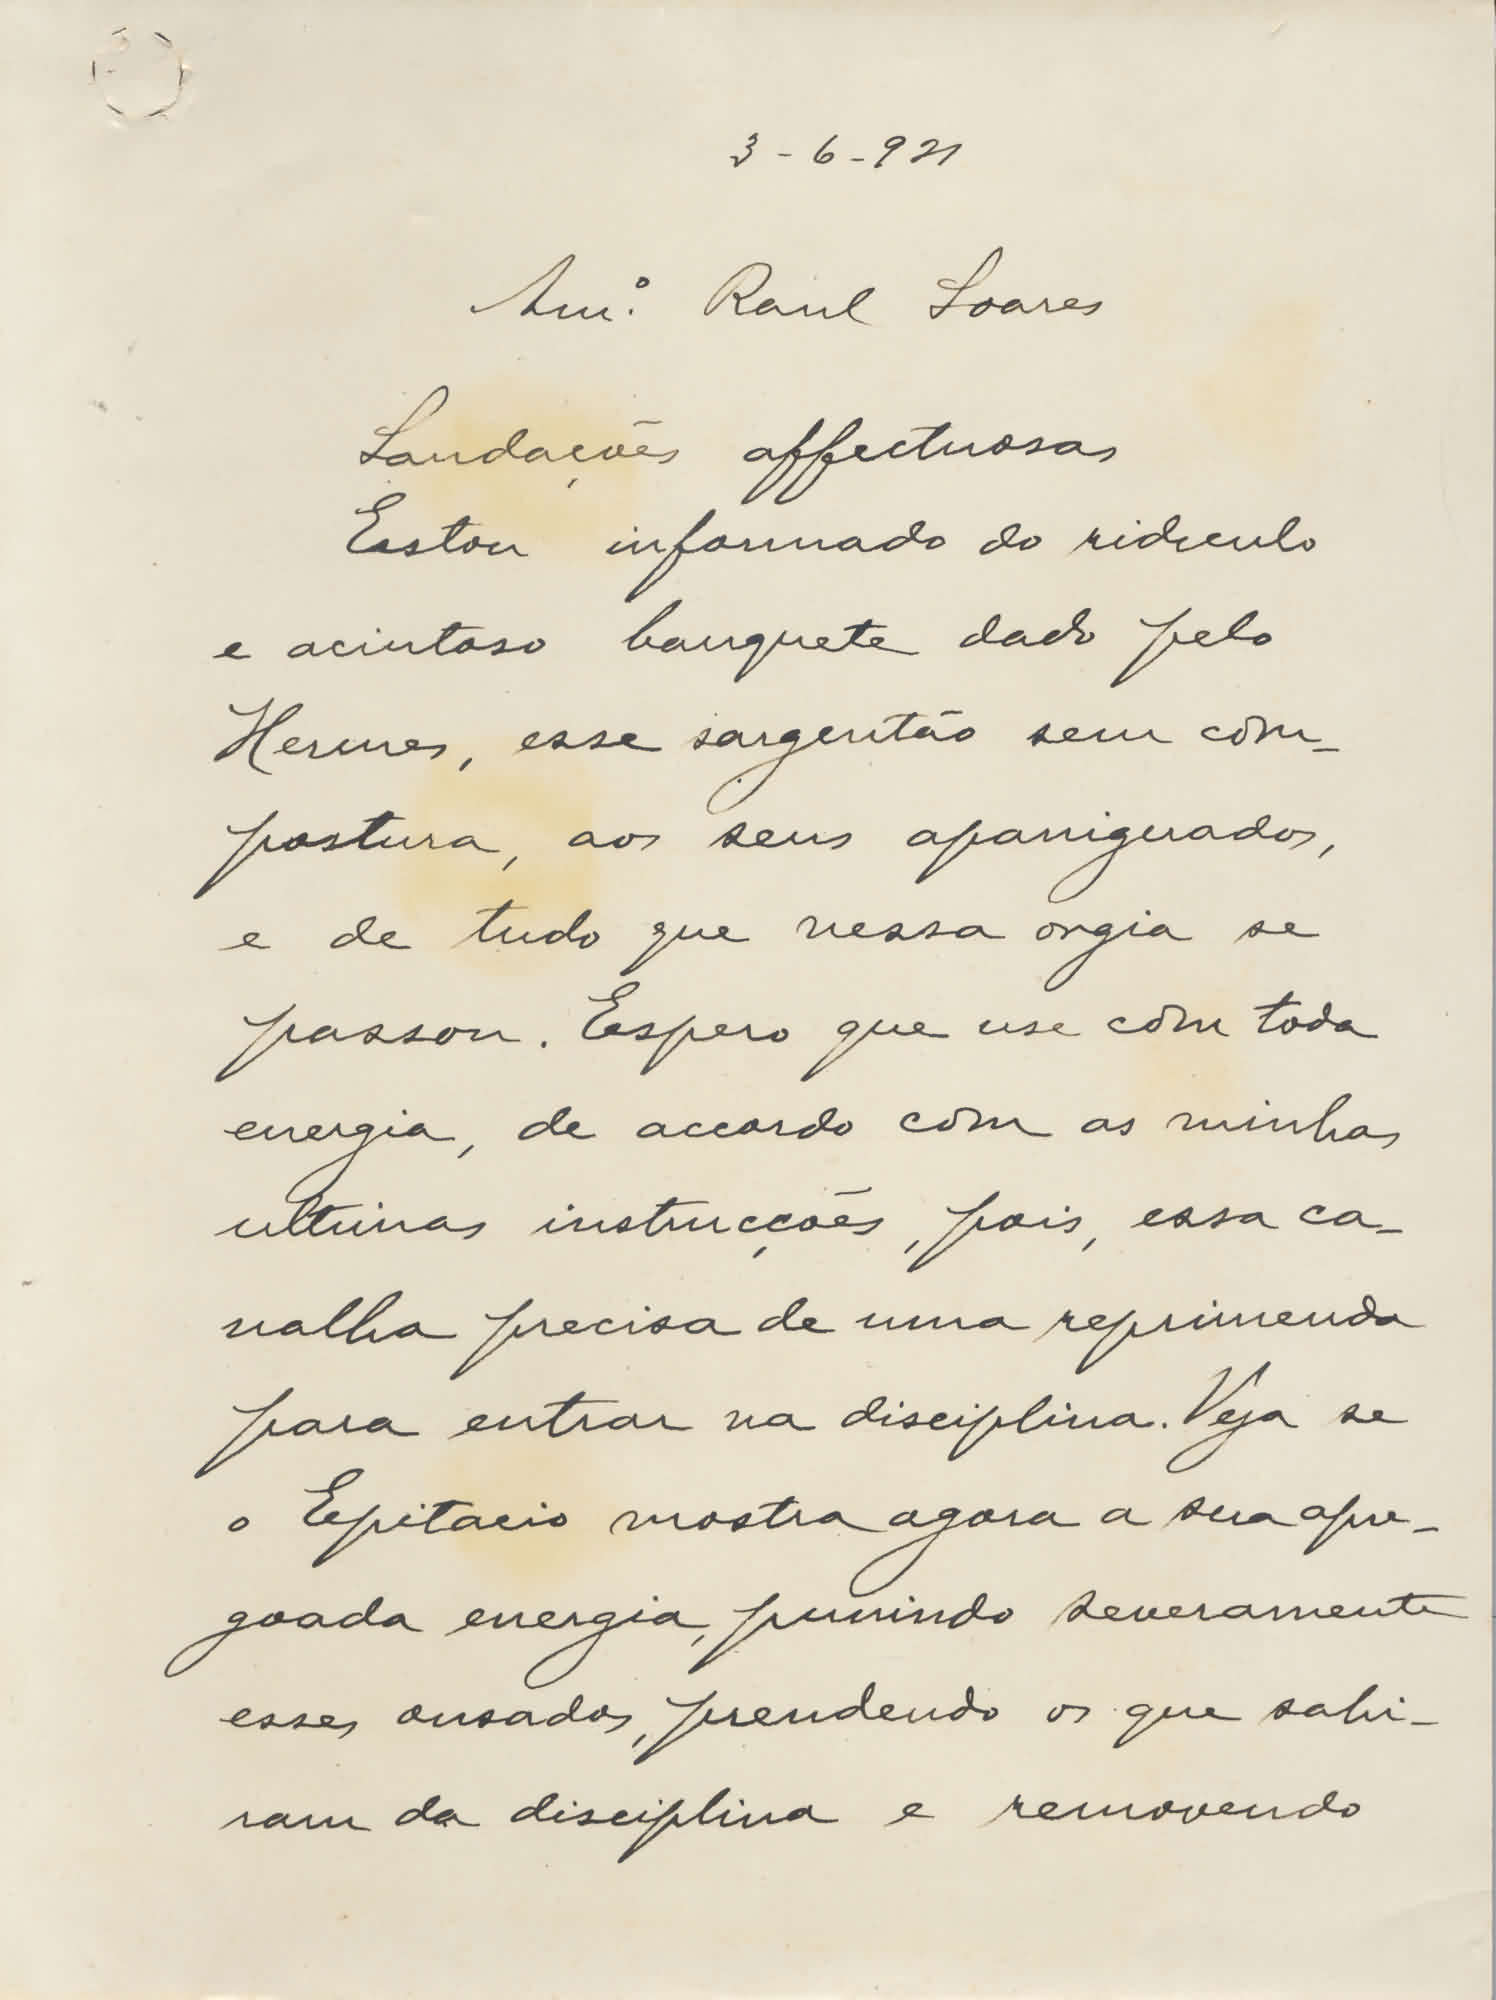 3-6-921
Am.º Raul Soares
Saudações affectuosas
Estou informado do ridiculo
e acintoso banquete dado pelo
Hermes, esse sargentão sem com-
postura, aos seus apaniguados,
e de tudo que nessa orgia se
passou. Espero que use com toda
energia, de accordo com as minhas
ultimas instrucções, pois, essa ca-
nalha precisa de uma reprimenda
para entrar na disciplina. Veja se
o Epitacio mostra agora a sua apre-
goada energia, punindo severamente
esses ousados, prendendo os que sahi-
ram da disciplina e removendo